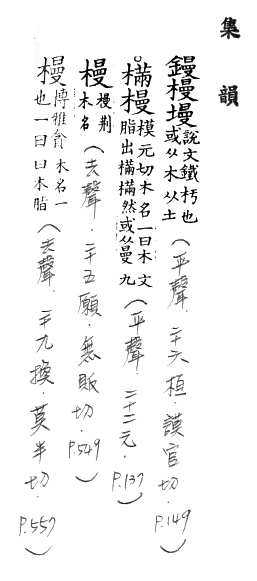 集韻
鏝槾墁 說文鐵杇也或从木从土(平聲.二十六桓.謨官切.P.149)
樠槾 模元切木名一曰木脂出樠樠然或从曼文九(平聲.二十二元.P.137)
槾 槾荆木名(去聲.二十五願.無販切.P.549)
槾 博雅㯰也一曰木名一曰木脂(去聲.二十九換.莫半切.P.557)